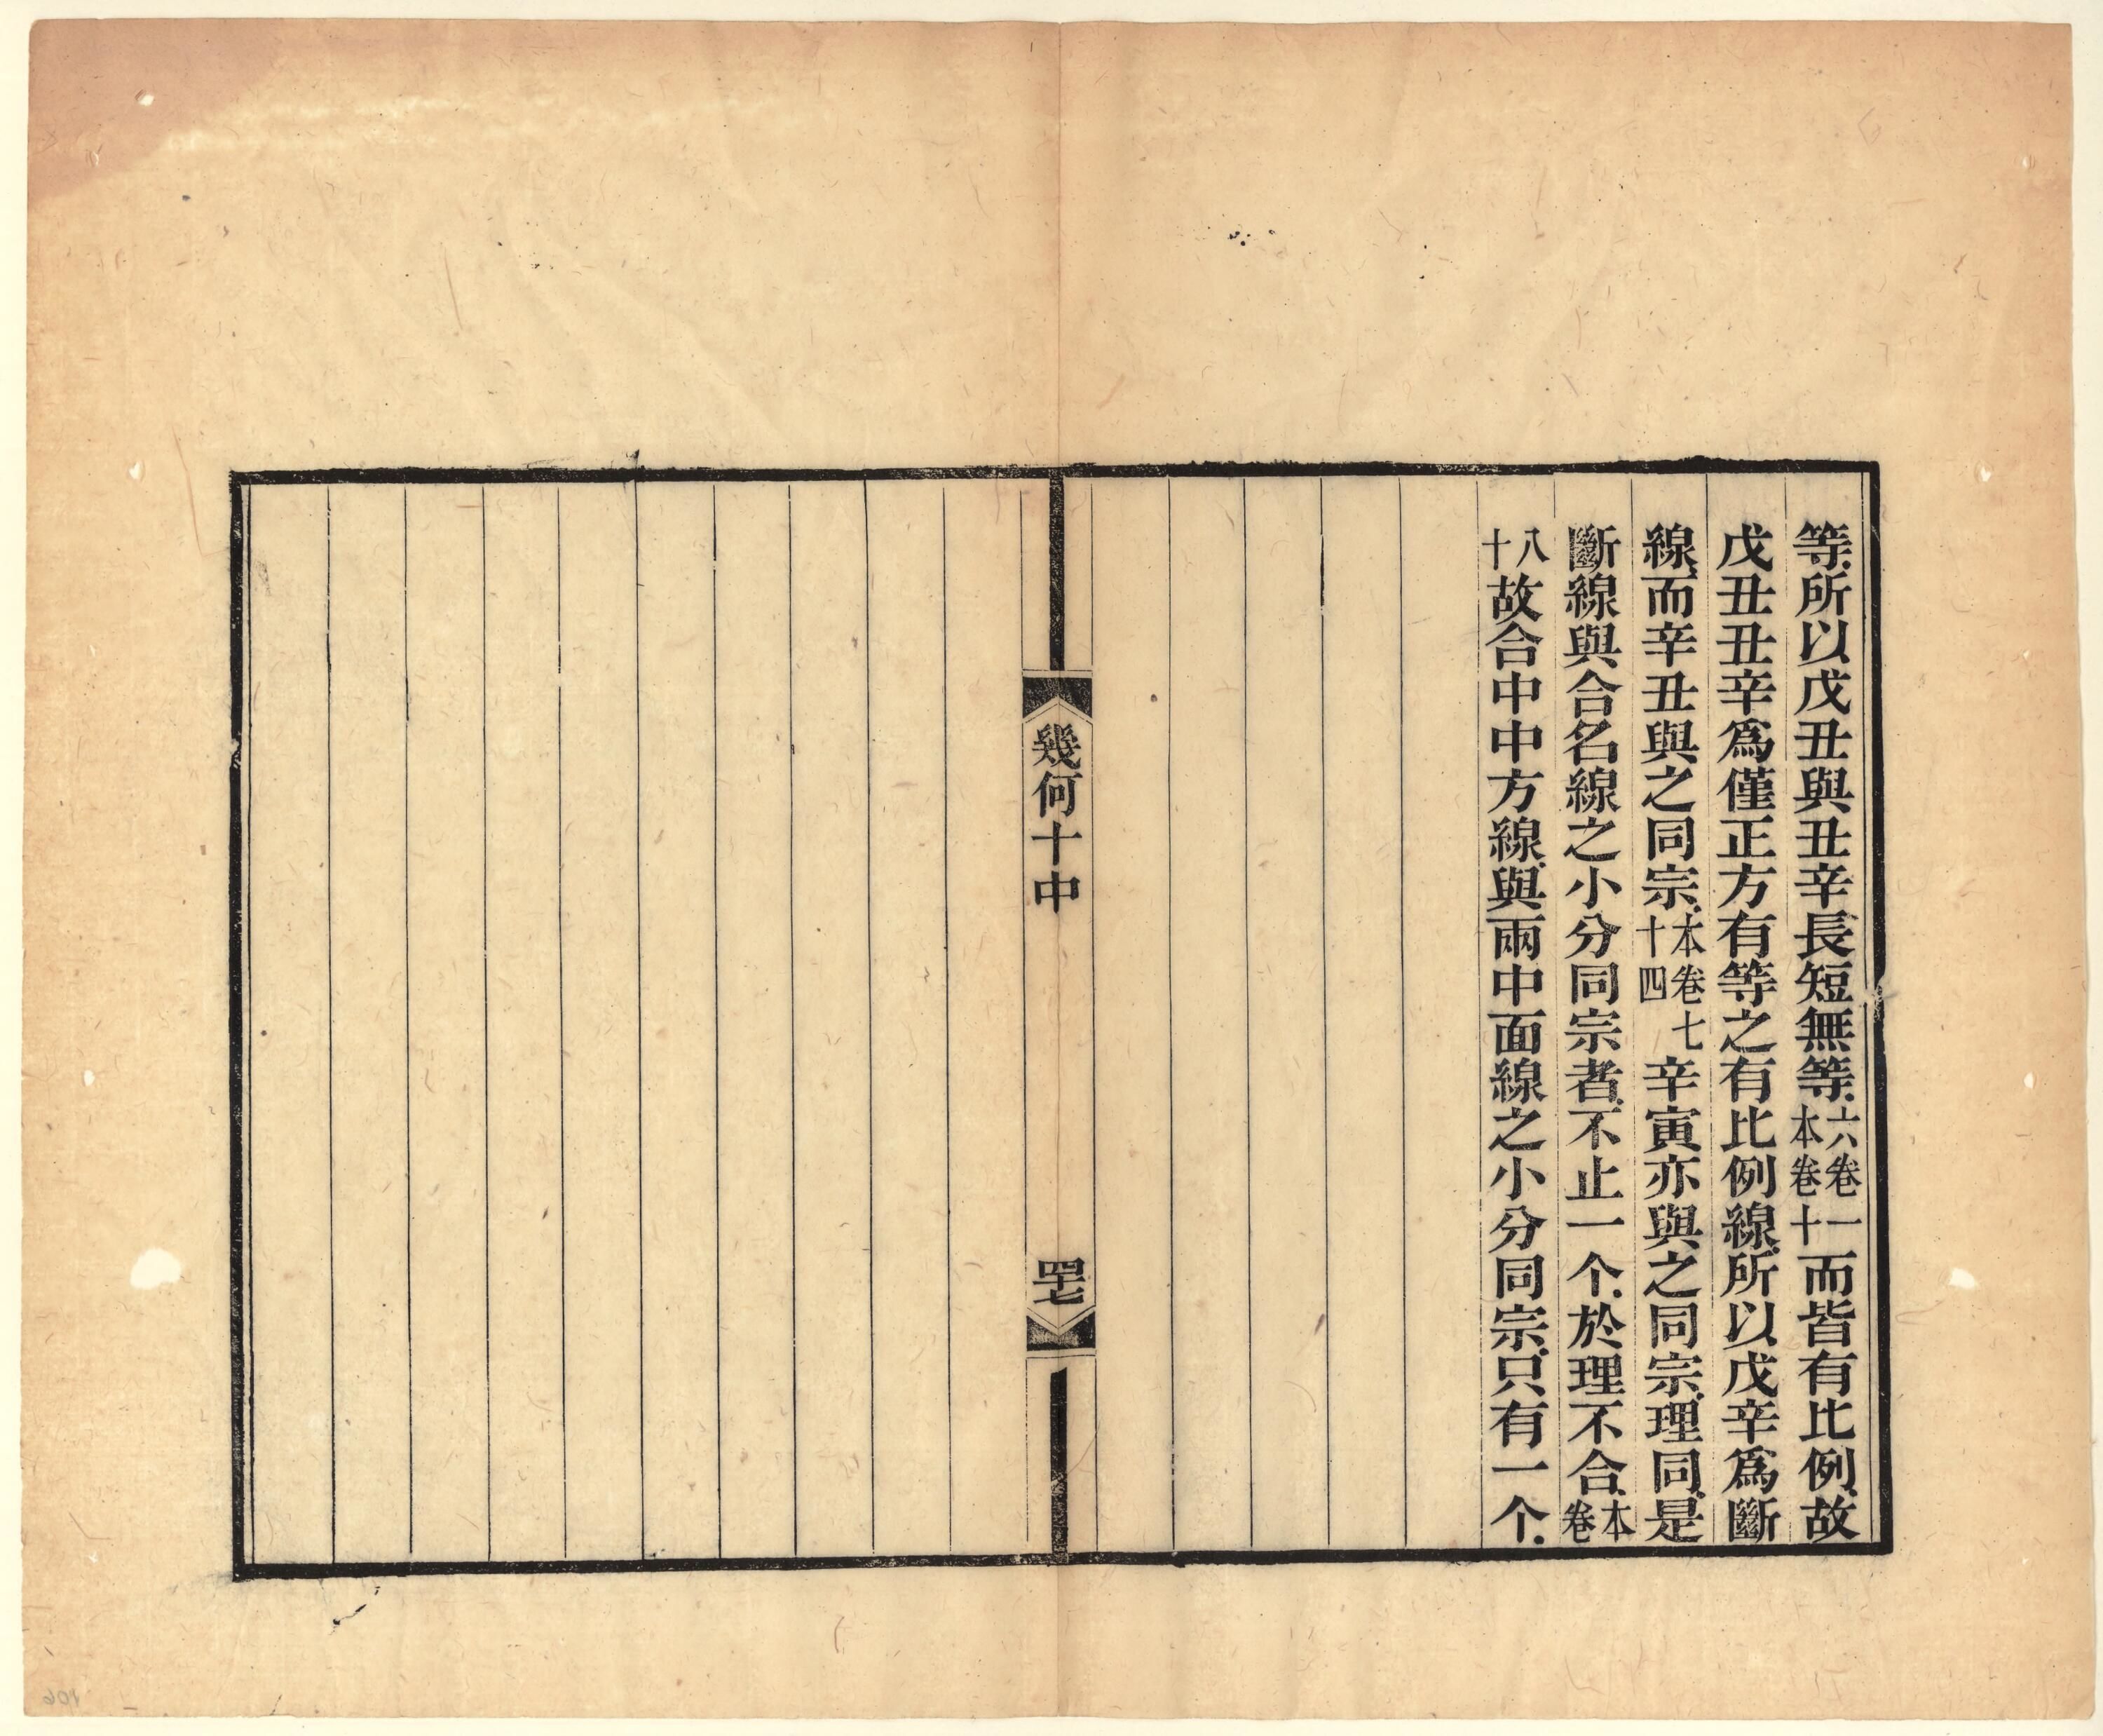 等.所以戊丑與丑辛長短無等.六卷一本卷十而皆有比例.故
戊丑丑辛爲僅正方有等之有比例線.所以戊辛爲斷
線.而辛丑與之同宗.本卷七十四辛寅亦與之同宗.理同.是
斷線與合名線之小分同宗者.不止一个.於理不合.本卷
八十故合中中方線.與兩中面線之小分同宗.只有一个.
幾何十中
四十七